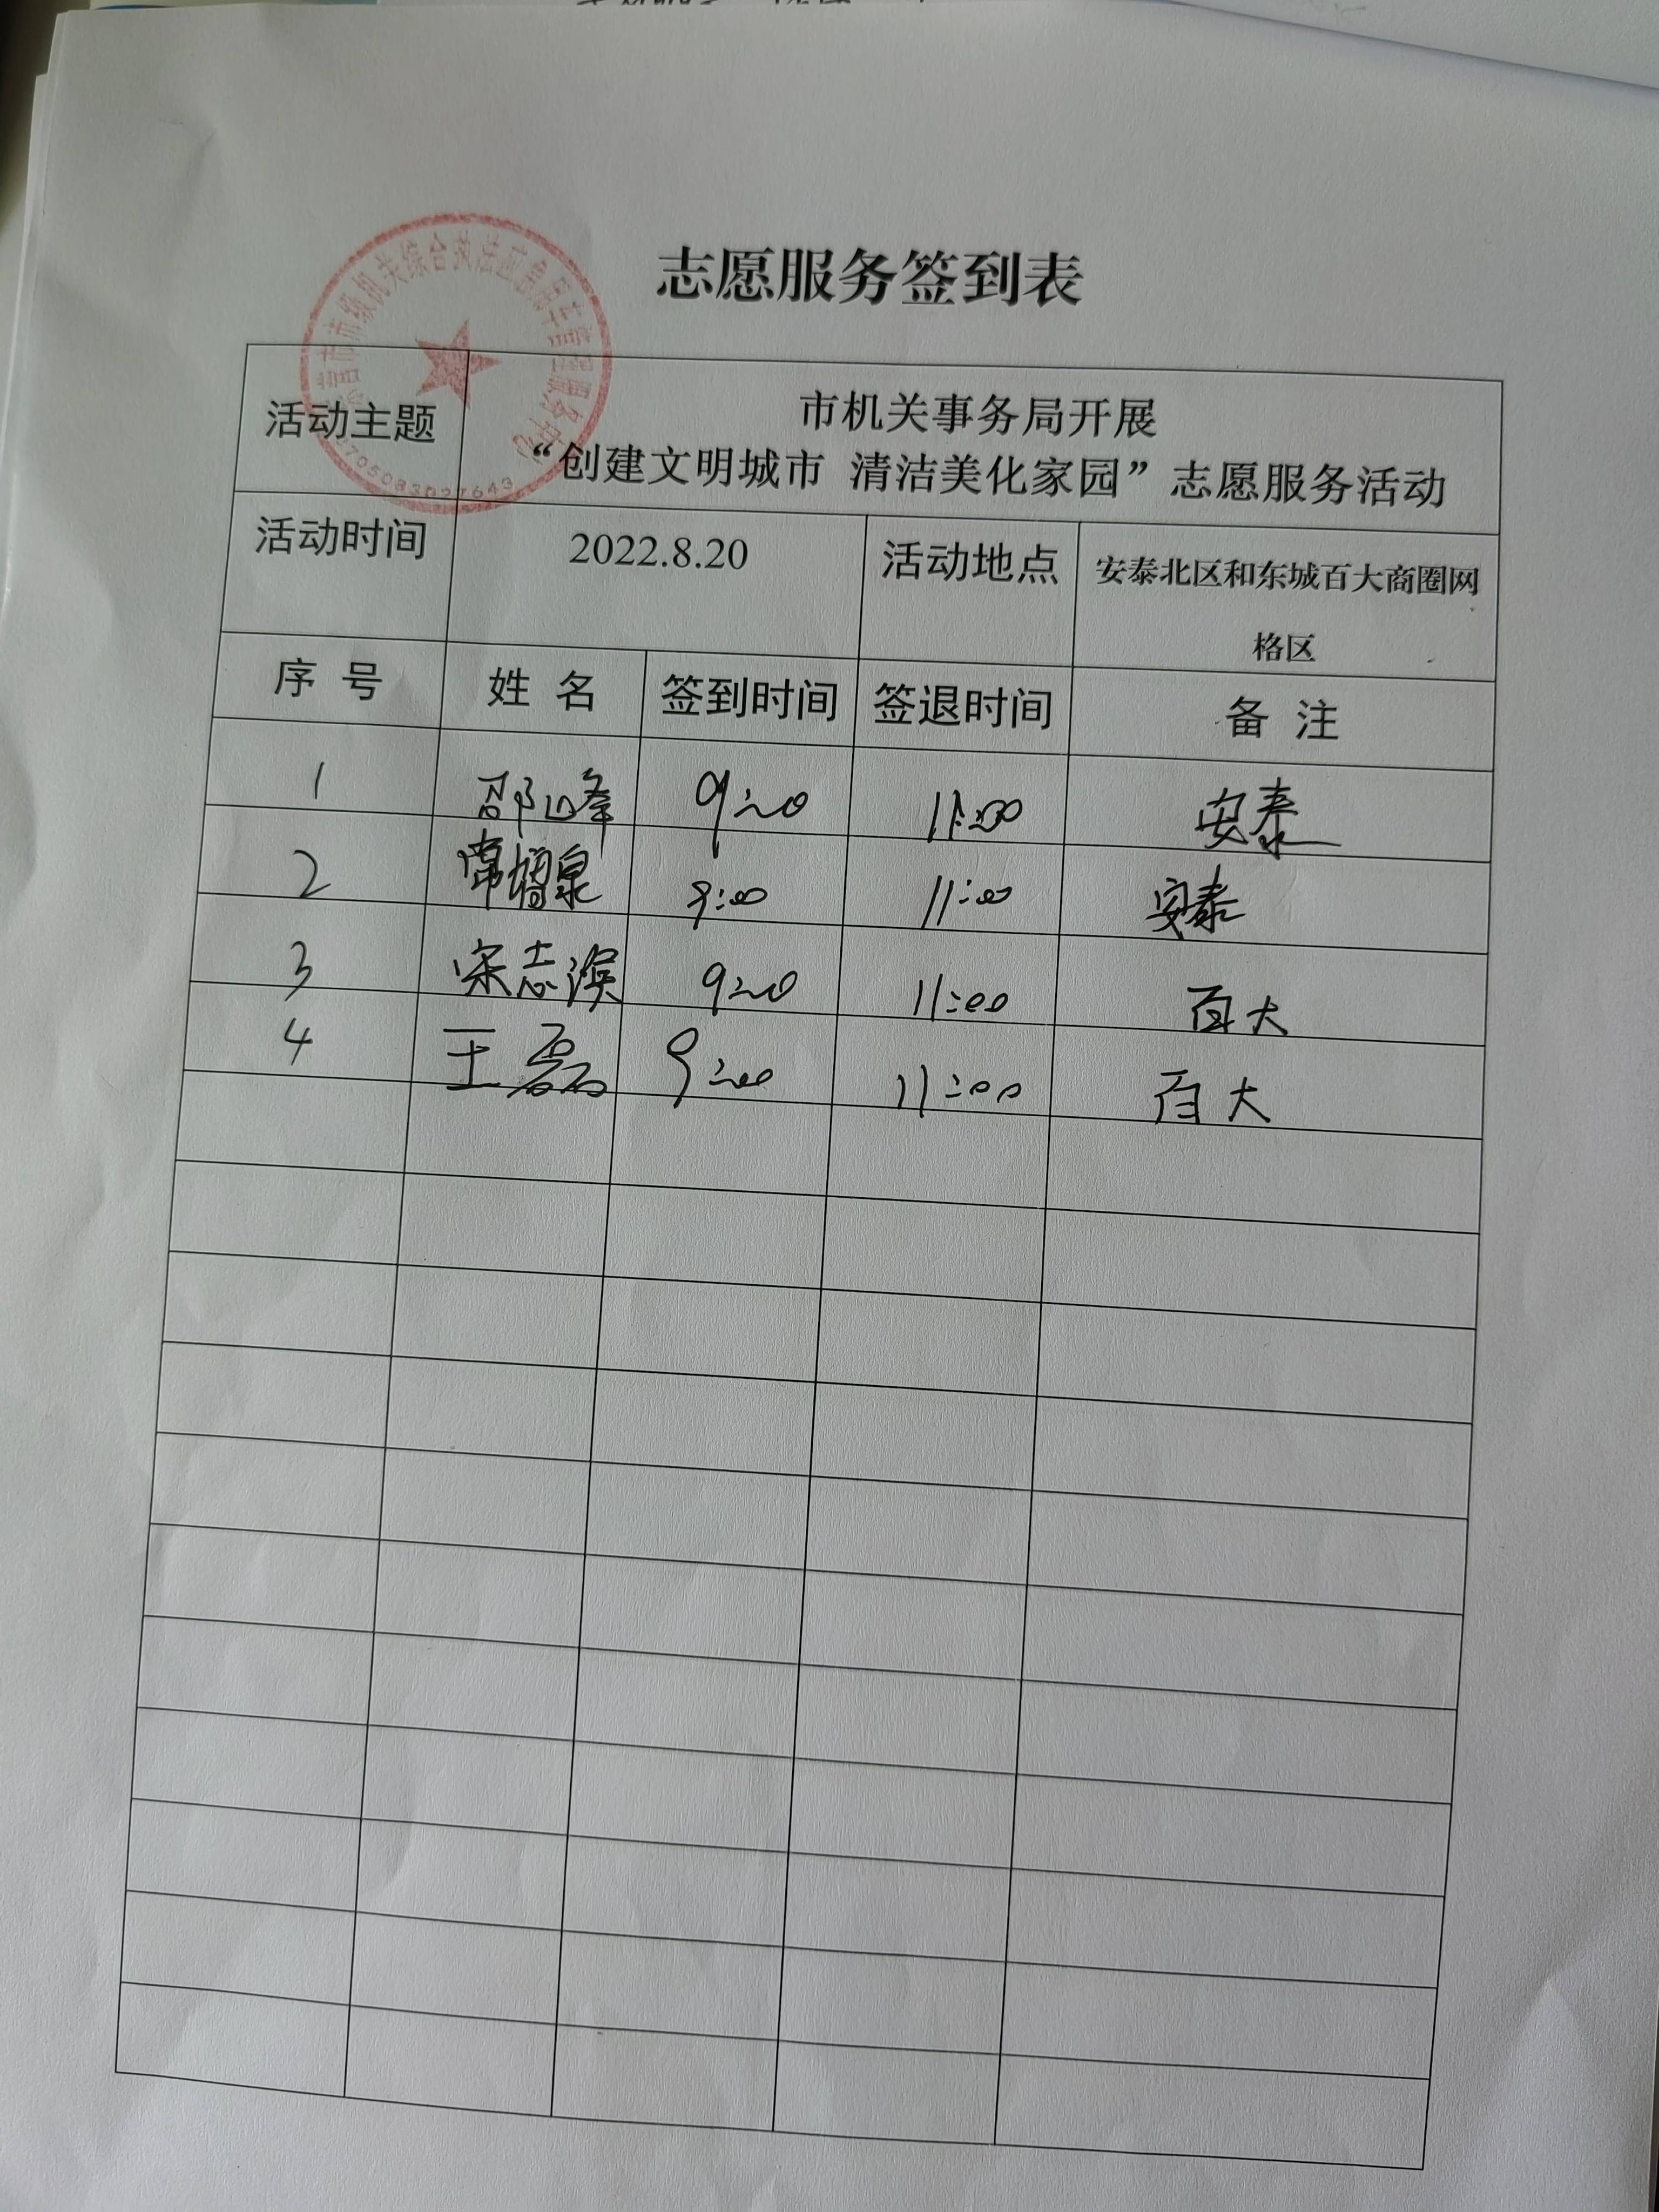 志愿服务签到表
活动主题
市机关事务局开展
“创建文明城市 清洁美化家园”志愿服务活动
活动时间 2022.8.20 活动地点 安泰北区和东城百大商圈网
格区
序 号 姓 名 签到时间 签退时间 备 注
1 邵山峰 9:00 11:00 安泰
2 常增泉 9:00 11:00 安泰
3 宋志滨 9:00 11:00 百大
4 王磊 9:00 11:00 百大
市市级机关综合执法应急用车管理服务中心